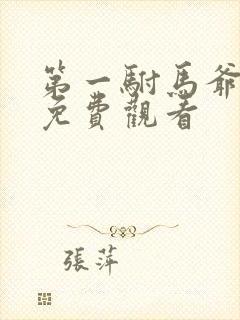 第一駙馬爺
免費觀看
張萍